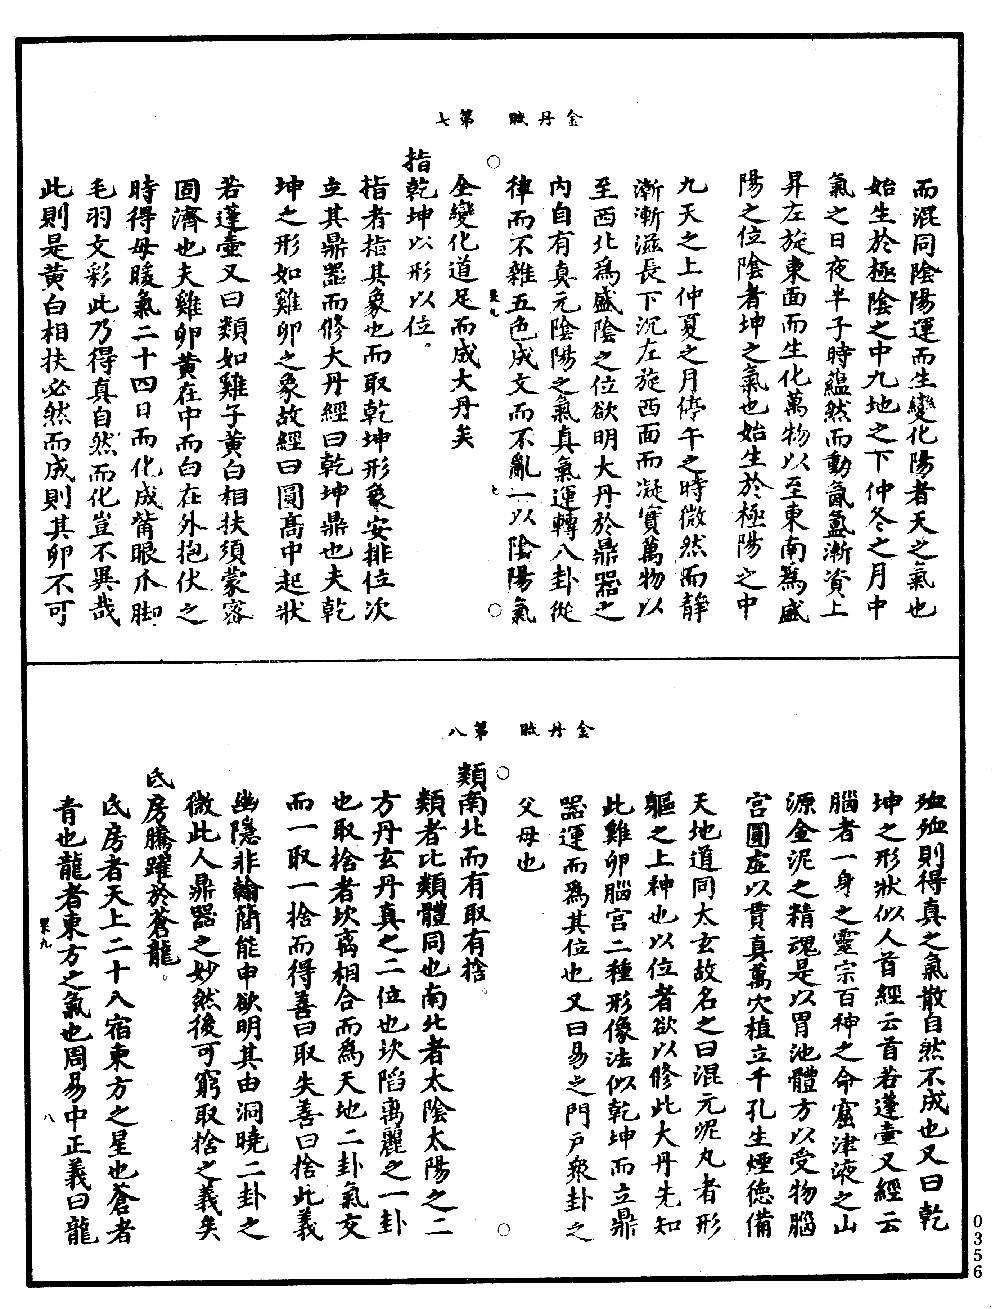 金丹賦　第七
而混同陰陽運而生變化陽者天之氣也
始生於極陰之中九地之下仲冬之月中
氣之日夜半子時蘊然而動氤氳漸資上
昇左旋東面而生化萬物以至東南為盛
陽之位陰者坤之氣也始生於極陽之中
九天之上仲夏之月停午之時微然而靜
漸漸滋長下沉左旋西面而凝實萬物以
至西北為盛陰之位欲明大丹於鼎器之
內自有真元陰陽之氣真氣運轉八卦從
律而不雜五色成文而不亂一以陰陽氣
全變化道足而成大丹矣
指乾坤以形以位。
指者指其象也而取乾坤形象安排位次
立其鼎器而修大丹經曰乾坤鼎也夫乾
坤之形如雞卵之象故經曰圓高中起狀
若蓬壺又曰類如雞子黃白相扶須蒙密
固濟也夫雞卵黃在中而白在外抱伏之
時得母暖氣二十四日而化成觜眼爪腳
毛羽文彩此乃得真自然而化豈不異哉
此則是黃白相扶必然而成則其卵不可
金丹賦　第八
㱩㱩則得真之氣散自然不成也又曰乾
坤之形狀似人首經云首若蓬壺又經云
腦者一身之靈宗百神之命窟津液之山
源金泥之精魂是以胃池體方以受物腦
宮圓虛以貫真萬穴植立千孔生煙德備
天地道同太玄故名之曰混元泥丸者形
軀之上神也以位者欲以修此大丹先知
此雞卵腦宮二種形像法似乾坤而立鼎
器運而為其位也又曰易之門戶眾卦之
父母也
類南北而有取有捨。
類者比類體同也南北者太陰太陽之二
方丹玄丹真之二位也坎陷离麗之一卦
也取捨者坎离相合而為天地二卦氣交
而一取一捨而得善曰取失善曰捨此義
幽隱非翰簡能申欲明其由洞曉二卦之
微此人鼎器之妙然後可窮取捨之義矣
氐房騰躍於蒼龍。
氐房者天上二十八宿東方之星也蒼者
青也龍者東方之氣也周易中正義曰龍
0356